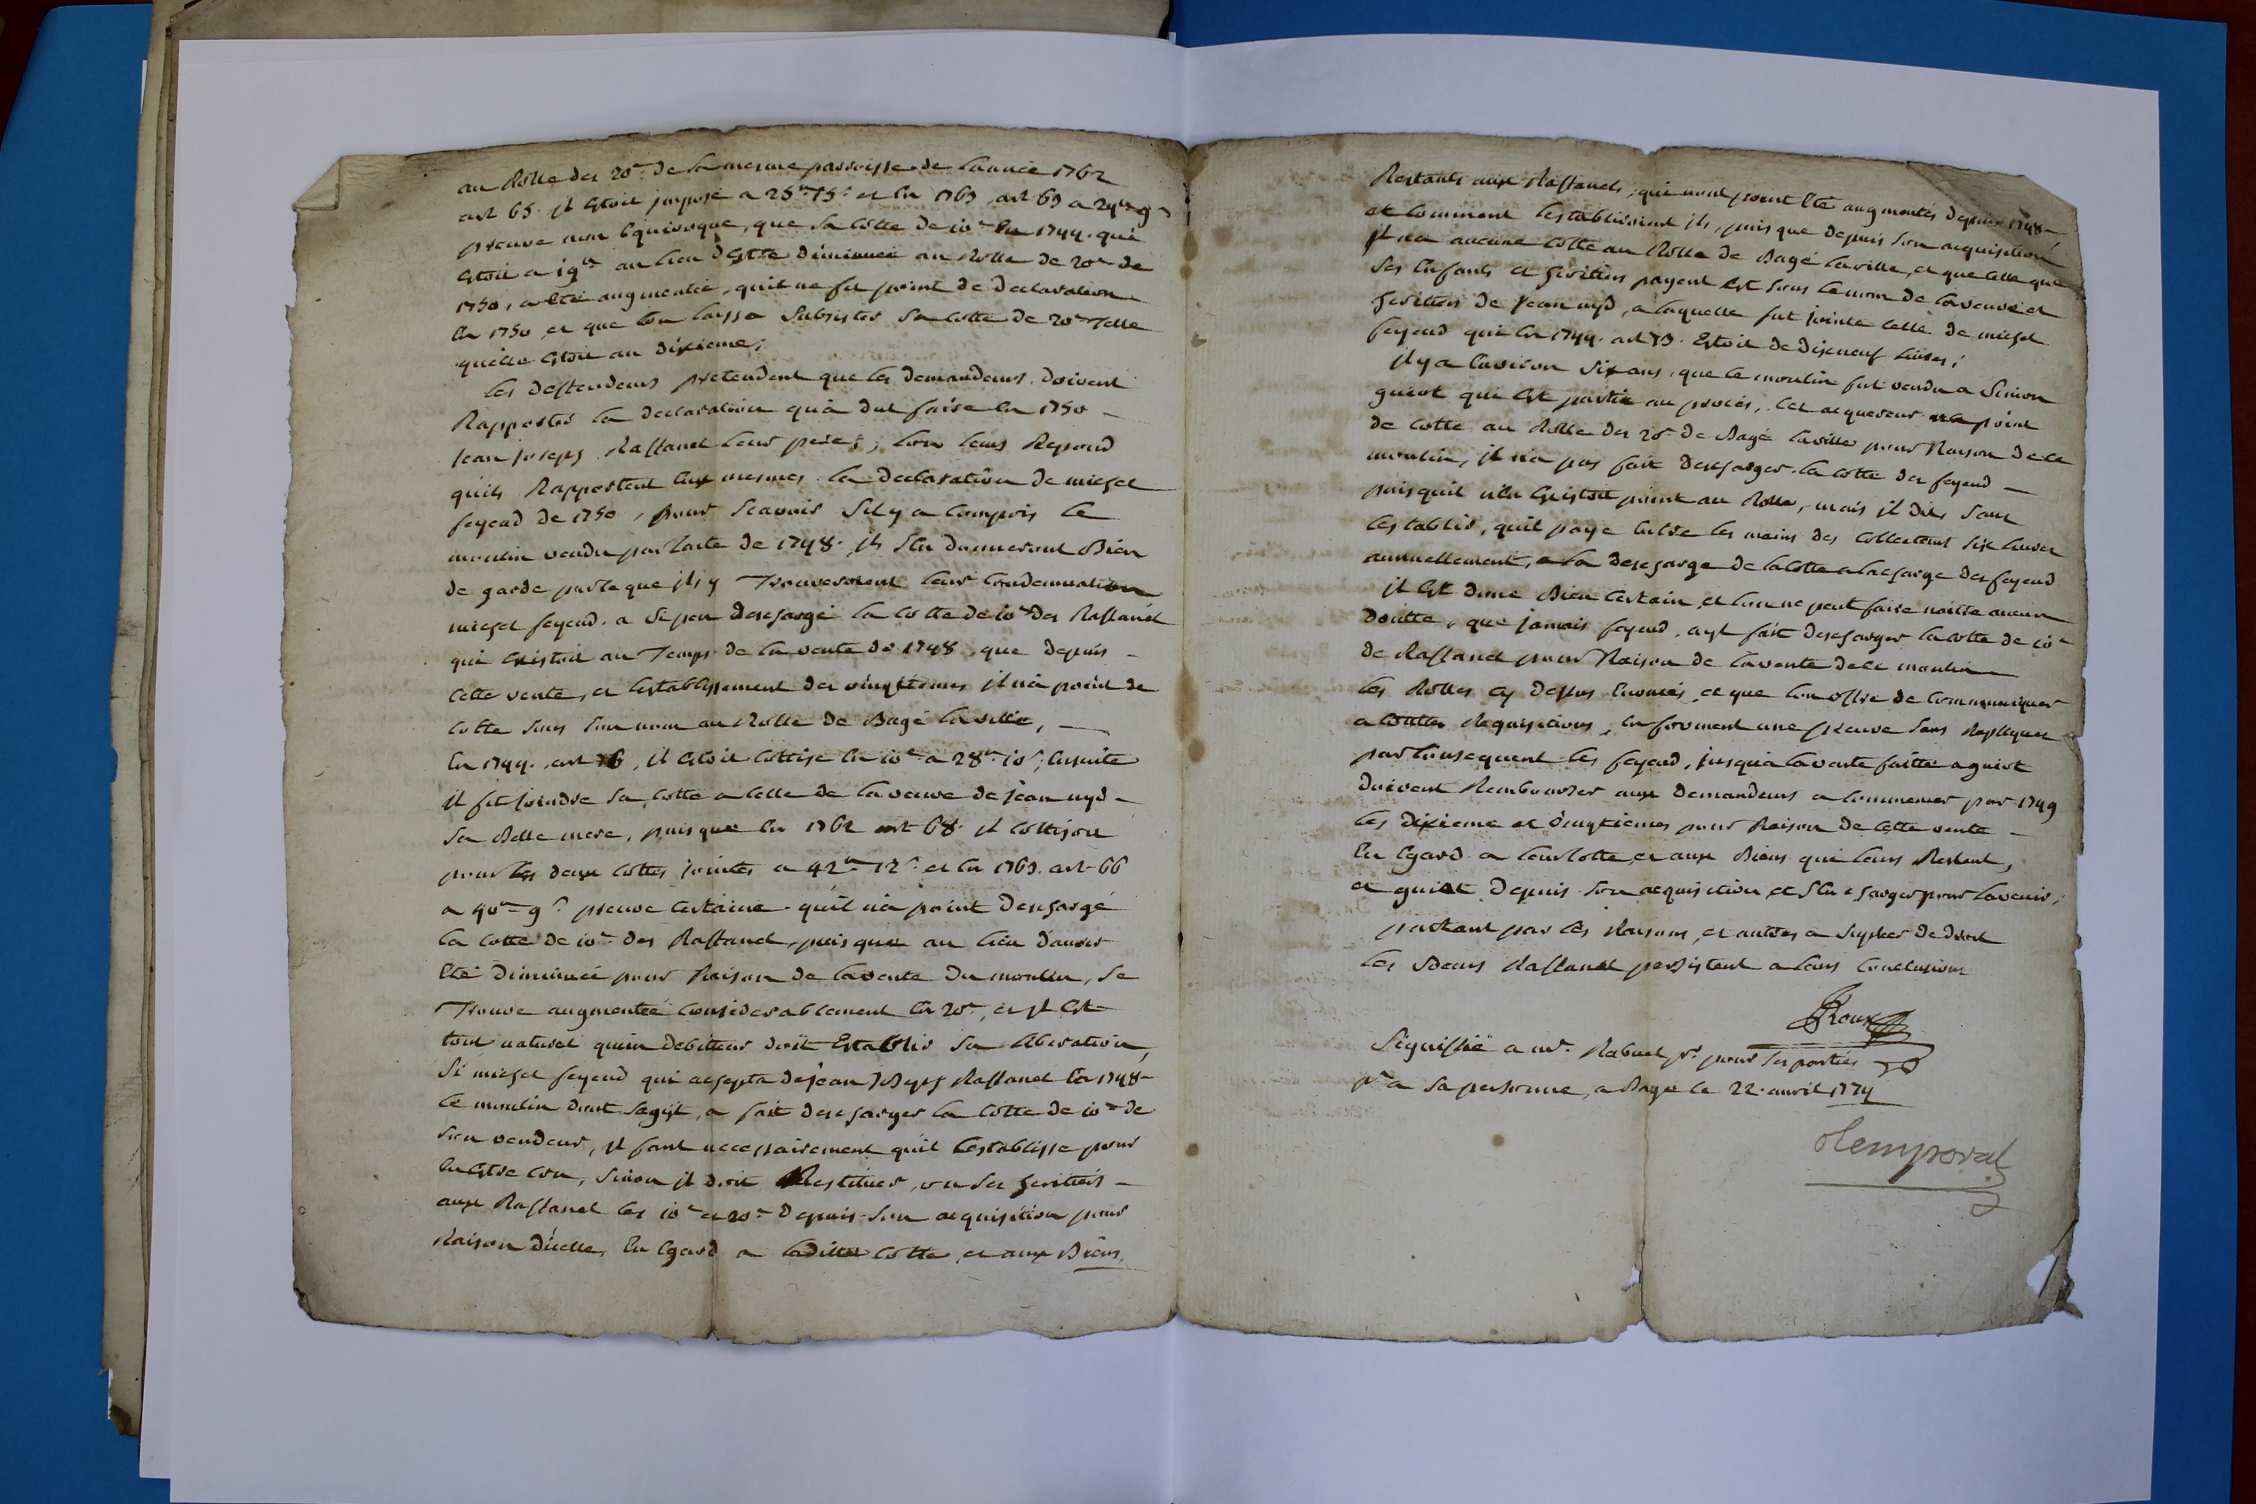 au Rolle des 20e. de la mesme parroisse de lannée 1762
art 65. il Etoit imposé a 25tt 15s et en 1763 art 69 a 29tt 9s
preuve non Equivoque, que sa Cotte de 10e En 1744. qui
Etoit a 19tt au lieu dEstre diminuée au Rolle de 20e de
1750, a Eté augmentée, quil ne fit point de declaration
En 1750 et que lon laissa Subsister sa Cotte de 20e Telle
quelle Etoit au dixieme;
les deffendeurs pretendent que les demandeurs. doivent
Rapporter la declaration qu'a dut faire En 1750
jean joseph Raffanel leur pere; lon leurs Repond
quils Rapportent Eux mesmes la declaration de michel
feyeud de 1750, pour Scavoir Sil y a Compris le
moulin vendu par lacte de 1748. ils s'En donneront Bien
de garde parce que ils y Trouveroient leur Condemnation
michel feyeud. a si peu dechargé la Cotte de 10e des Raffanel
qui Existoit au Temps de la vente de 1748, que depuis
cette vente, et l'Establissement des vingtiemes il n'a point de
Cotte sous son nom au Rolle de Bagé la ville,
En 1744. art 76, il Etoit Cottisé En 10e a 28tt 10s, Ensuite
il fit joindre sa Cotte a Celle de la veuve de jean nyd
sa Belle mere, puisque En 1762 art 68. il Cottisoit
pour les deux Cottes jointes a 42tt 12s et En 1763. art 66
a 40tt 9s preuve Certaine quil n'a point dechargé
la Cotte de 10e des Raffanel, puis que au lieu davoir
Eté diminuée pour Raison de la vente du moulin, se
Trouve augmentée Considerablement En 20e, et il Est
tout naturel qu'un debitteur doit Establir sa liberation,
Si michel feyeud qui achepta de jean joseph Raffanel En 1748
le moulin dont sagit, a fait decharger la Cotte de 10e de
son vendeur, il faut necessairement quil l'Establisse pour
En Estre Cru, sinon il doit Restituer, ou ses heritiers
aux Raffanel les 10e et 20e depuis son acquisition pour
Raison d'icelle, En Egard a laditte Cotte, et aux Biens
Restants aux Raffanels, qui nont point Eté augmentés depuis 1748
et Comment l'Establiroient ils, puis que depuis son acquisition
il n'a aucune Cotte au Rolle de Bagé la ville, et que Celle que
ses Enfants et heritiers payent Est sous le nom de la veuve et
heritiers de jean nyd, a laquelle fut jointe Celle de michel
feyeud qui En 1744. art 73. Estoit de dixneuf livres;
il y a Environ six ans, que le moulin fut vendu a Simon
guiot qui Est partie au procés, Cet acquereur n'a point
de Cotte au Rolle des 20e de Bagé la ville pour Raison de ce
moulin, il n'a pas fait decharger la Cotte des feyeud
puisquil n'En Existoit point au Rolle, mais il dit, sans
l'Establir, quil paye Entre les mains des Collecteurs six livres
annuellement, a la decharge de la Cotte a la charge des feyeud
il Est donc Bien Certain, et lon ne peut faire naitre aucun
doutte, que jamais feyeud. ayt fait decharger la Cotte de 10e
de Raffanel pour Raison de la vente de ce moulin
les Rolles cy dessus Enoncés, et que lon offre de Communiquer
a touttes Requisitions, En forment une preuve sans Replique
par Consequent les feyeud, jusqu'a la vente faitte a guiot
doivent Rembourser aux demandeurs a Commencer par 1749
les dixieme et vingtiemes pour Raison de cette vente
En Egard a leur Cotte, et aux Biens qui leurs Restent,
et guiot depuis son acquisition, et s'En charger pour lavenir,
partant par ces Raisons, et autres a supleer de droit
les sieurs Raffanel persistent a leurs Conclusions
Roux
Signiffié a me. Rabuel pr. pour ses parties
pr a sa personne, a Bagé le 22. avril 1774
Temporal